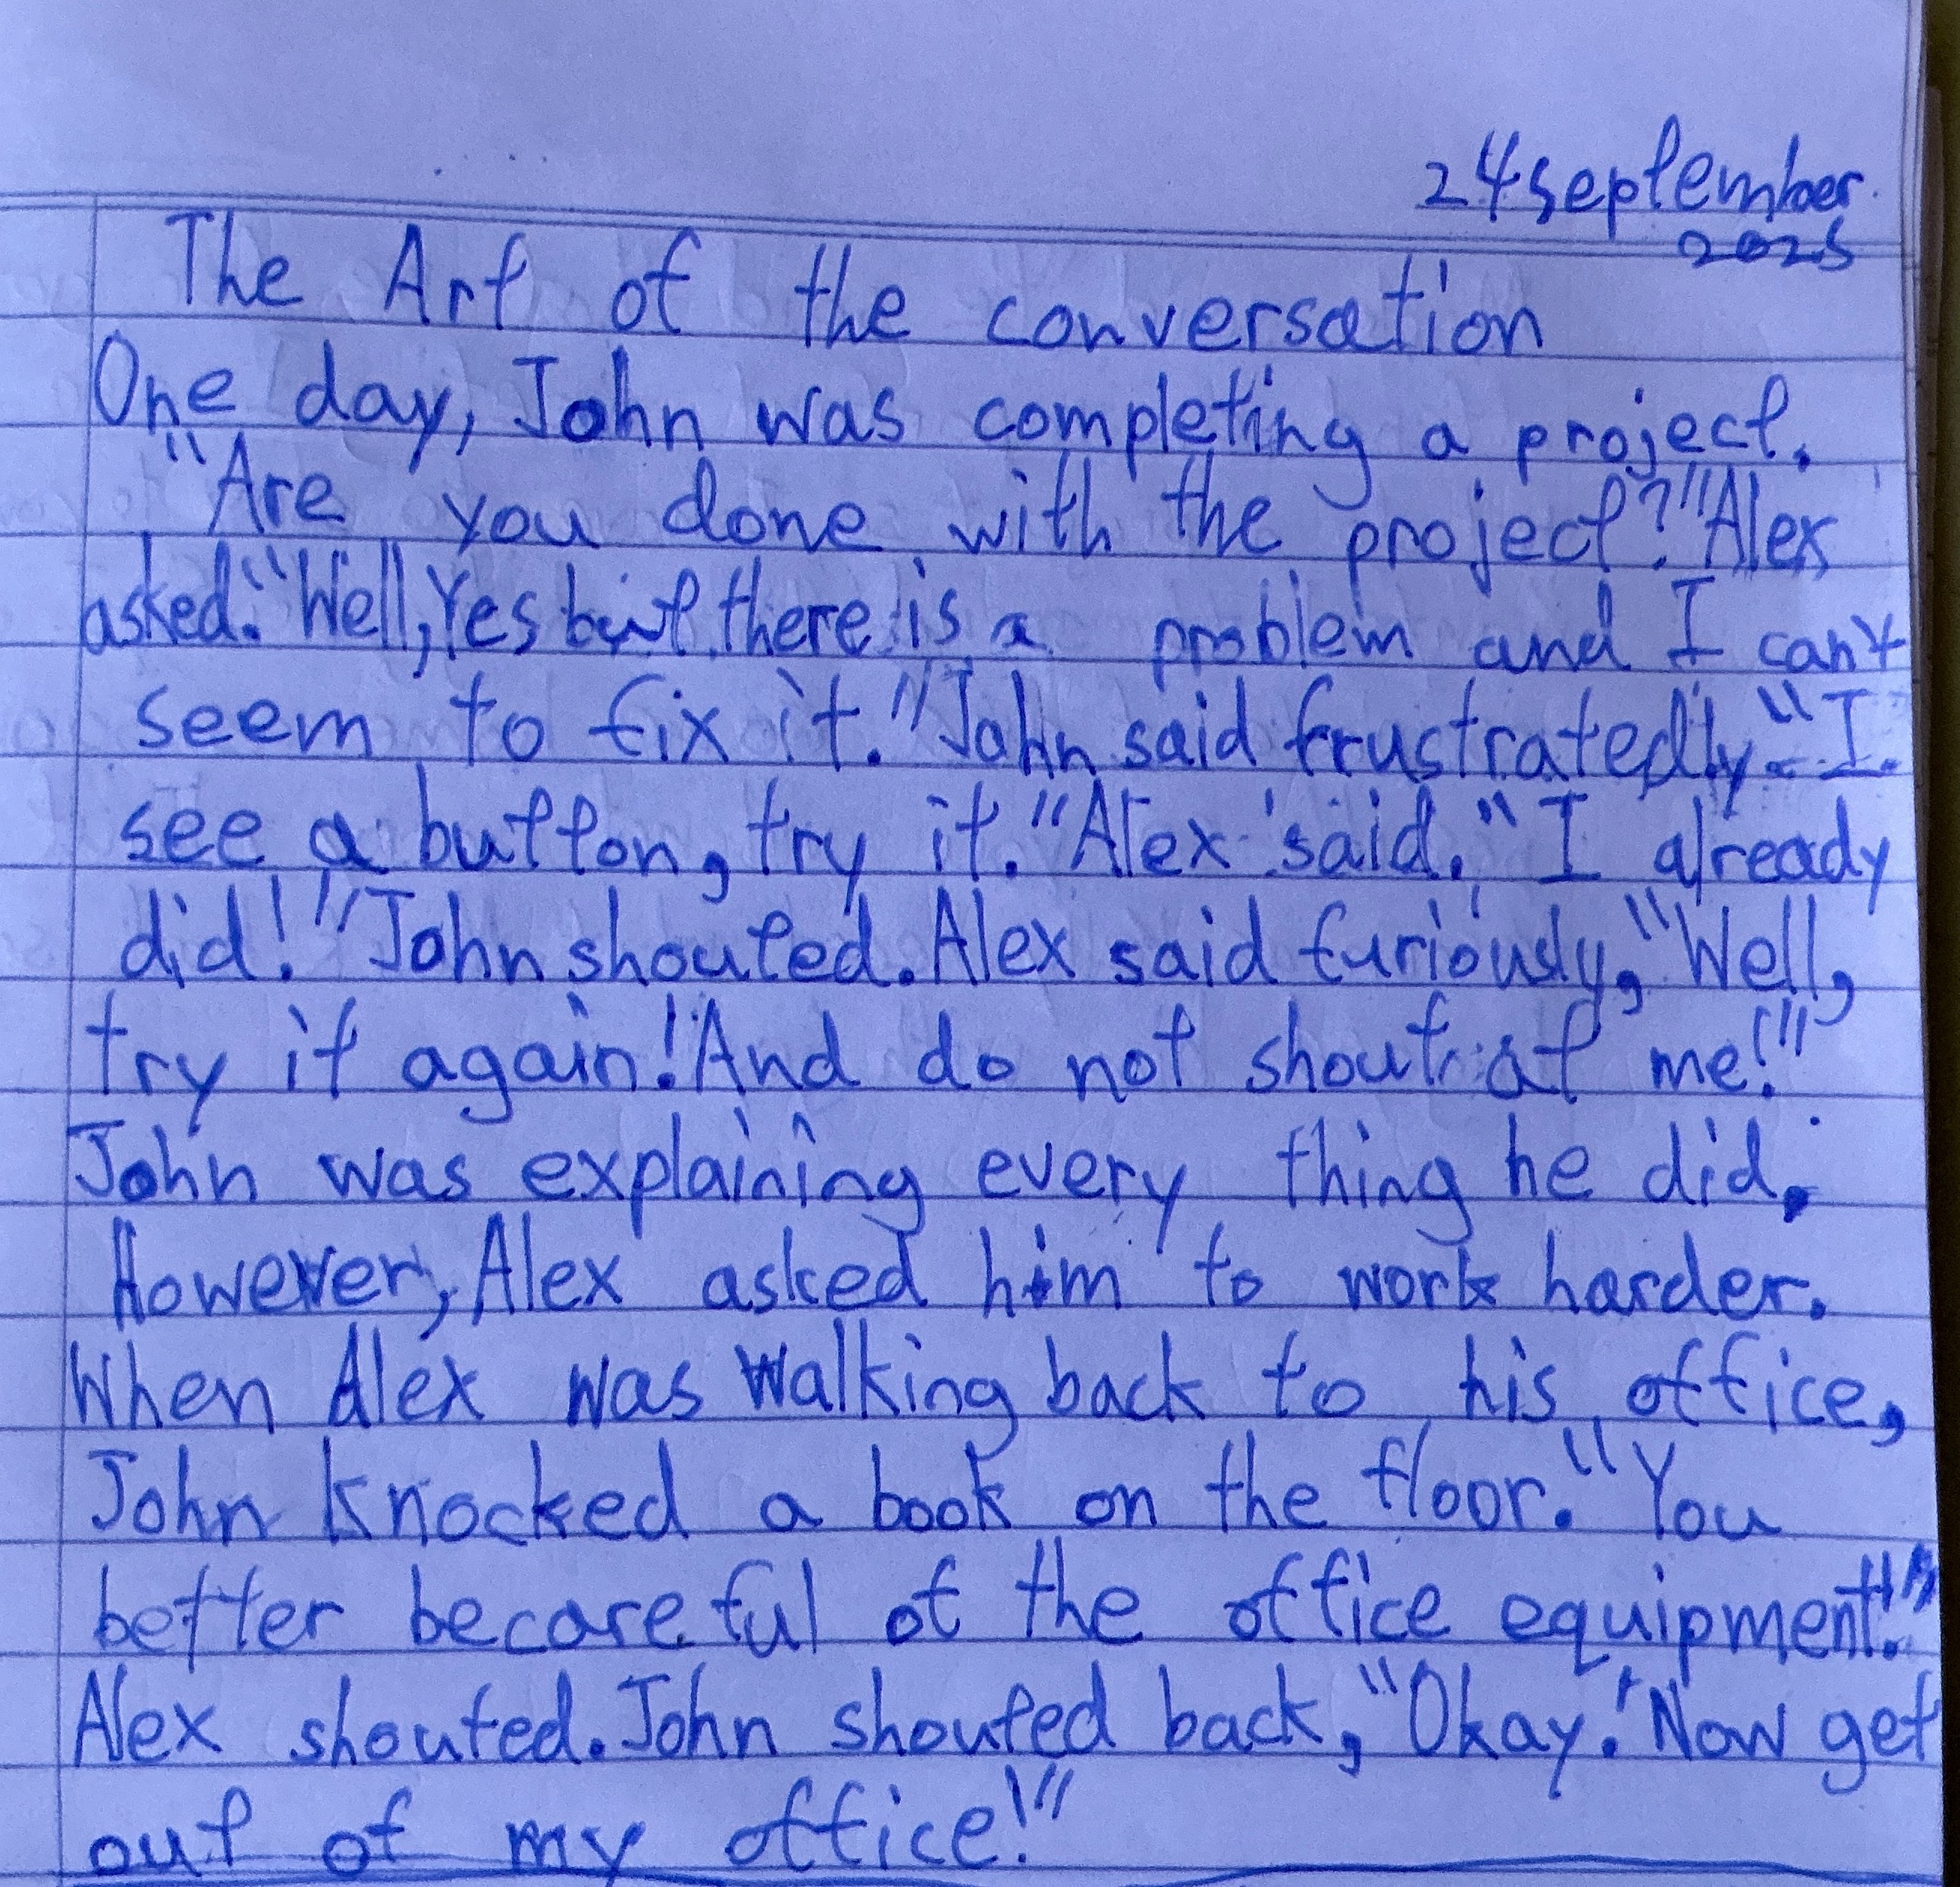 24 september
2025
The Art of the conversation
One day, John was completing a project.
"Are you done with the project?" Alex
asked. "Well, Yes but there is a problem and I can't
seem to fix it." John said frustratedly. "I
see a button, try it." Alex said. "I already
did!" John shouted. Alex said furiously, "Well,
try it again! And do not shout at me!"
John was explaining every thing he did.
However, Alex asked him to work harder.
When Alex was walking back to his office,
John knocked a book on the floor. "You
better becareful of the office equipment!"
Alex shouted. John shouted back, "Okay! Now get
out of my office!"